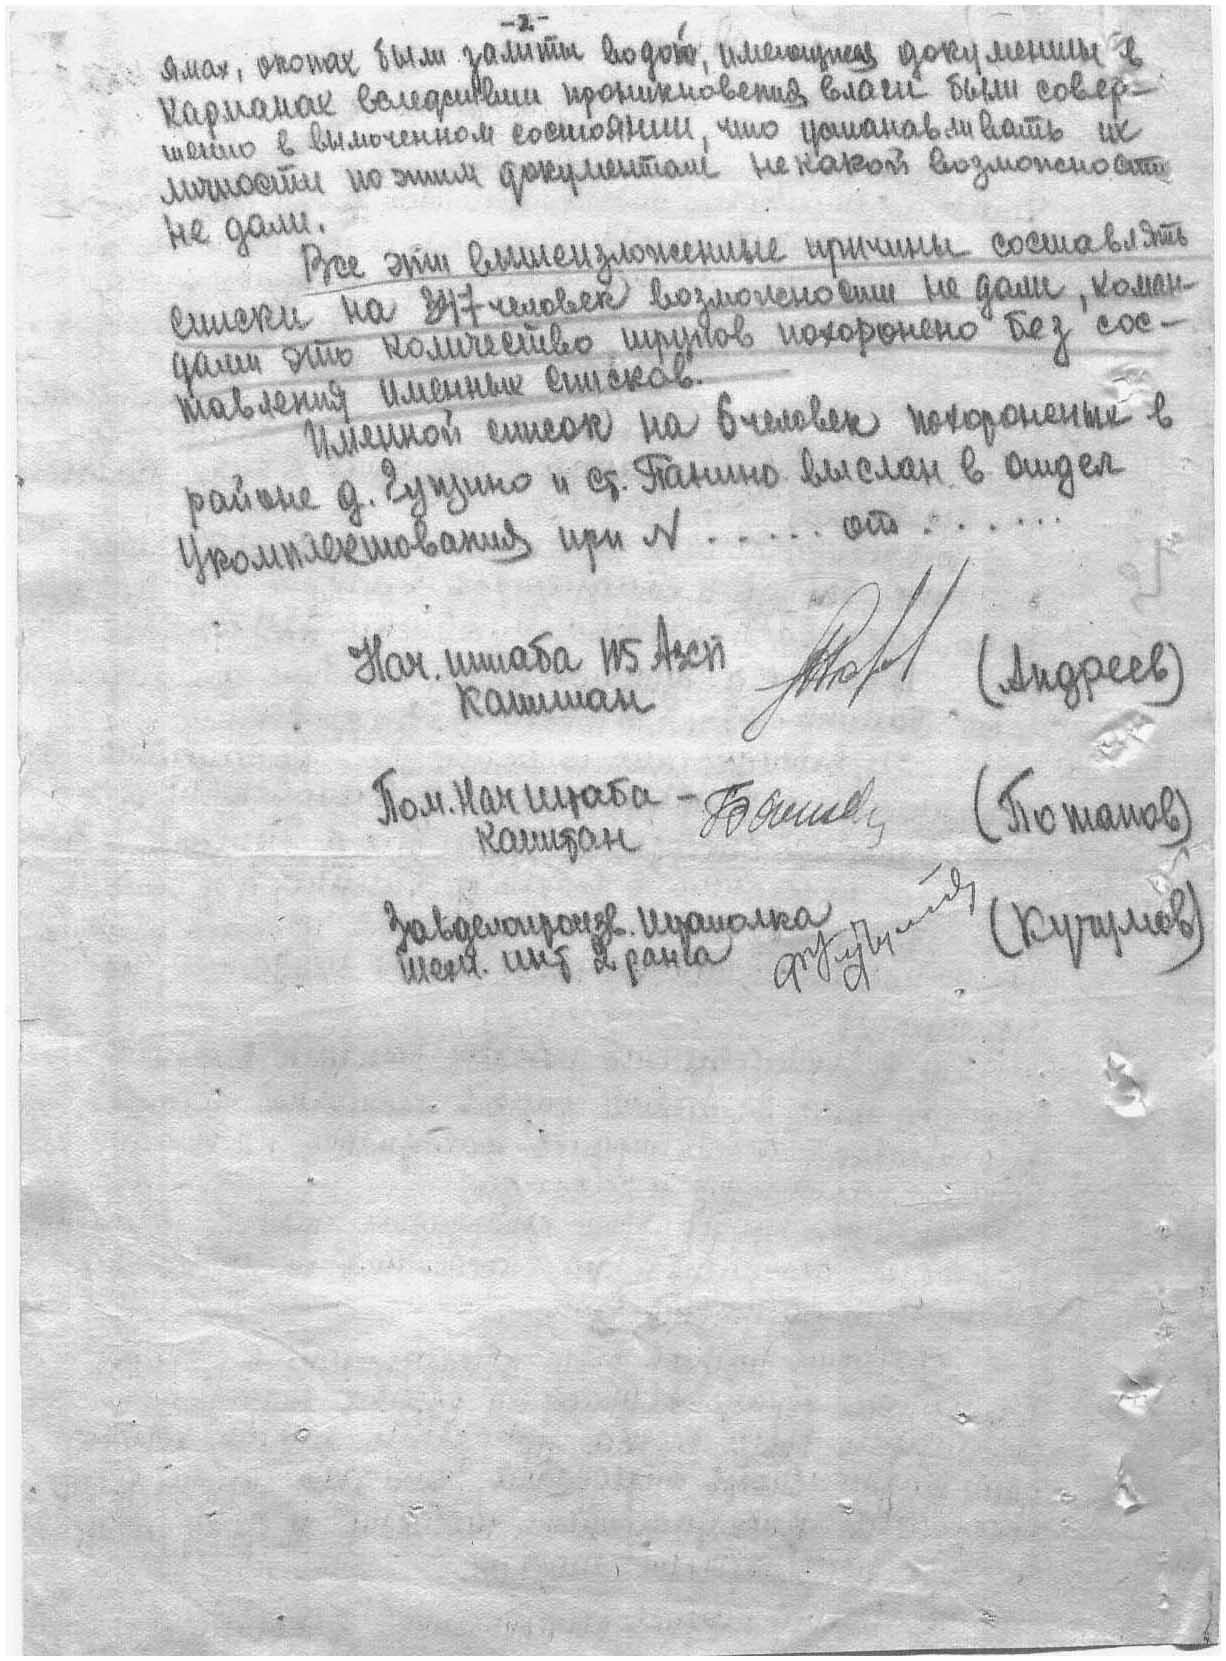 -2-
ямах, окопах были залиты водой, имеющиеся документы в
карманах вследствии проникновения влаги были совер-
шенно в вымоченном состоянии, что устанавливать их
личности по этим документам не какой возможности
не дали.
Все эти вышеизложенные причины составлять
списки на 347 человек возможности не дали, коман-
дами это количество трупов похоронено без сос-
тавления именных списков.
Именной список на 6 человек похороненых в
районе д. и ст. Панино выслан в отдел
Укомплектования при N ...... от .......
Нач. штаба 115 Азсп
Капитан
(Андреев)
Пом. Нач штаба -
Капитан
(Потапов)
Завделопроизв. штаполка
техн. инт 2 ранга
(Кучумов)